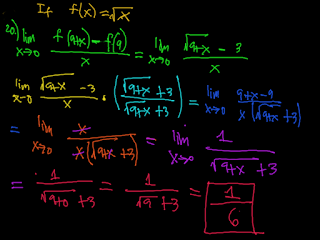 If f(x)=√x
20) lim x→0 f(9+x)-f(9) / x = lim x→0 √9+x - 3 / x
lim x→0 √9+x - 3 / x · (√9+x +3 / √9+x +3) = lim x→0 9+x-9 / x(√9+x +3)
= lim x→0 x / x(√9+x +3) = lim x→0 1 / √9+x +3
= 1 / √9+0 +3 = 1 / √9 +3 = 1 / 6